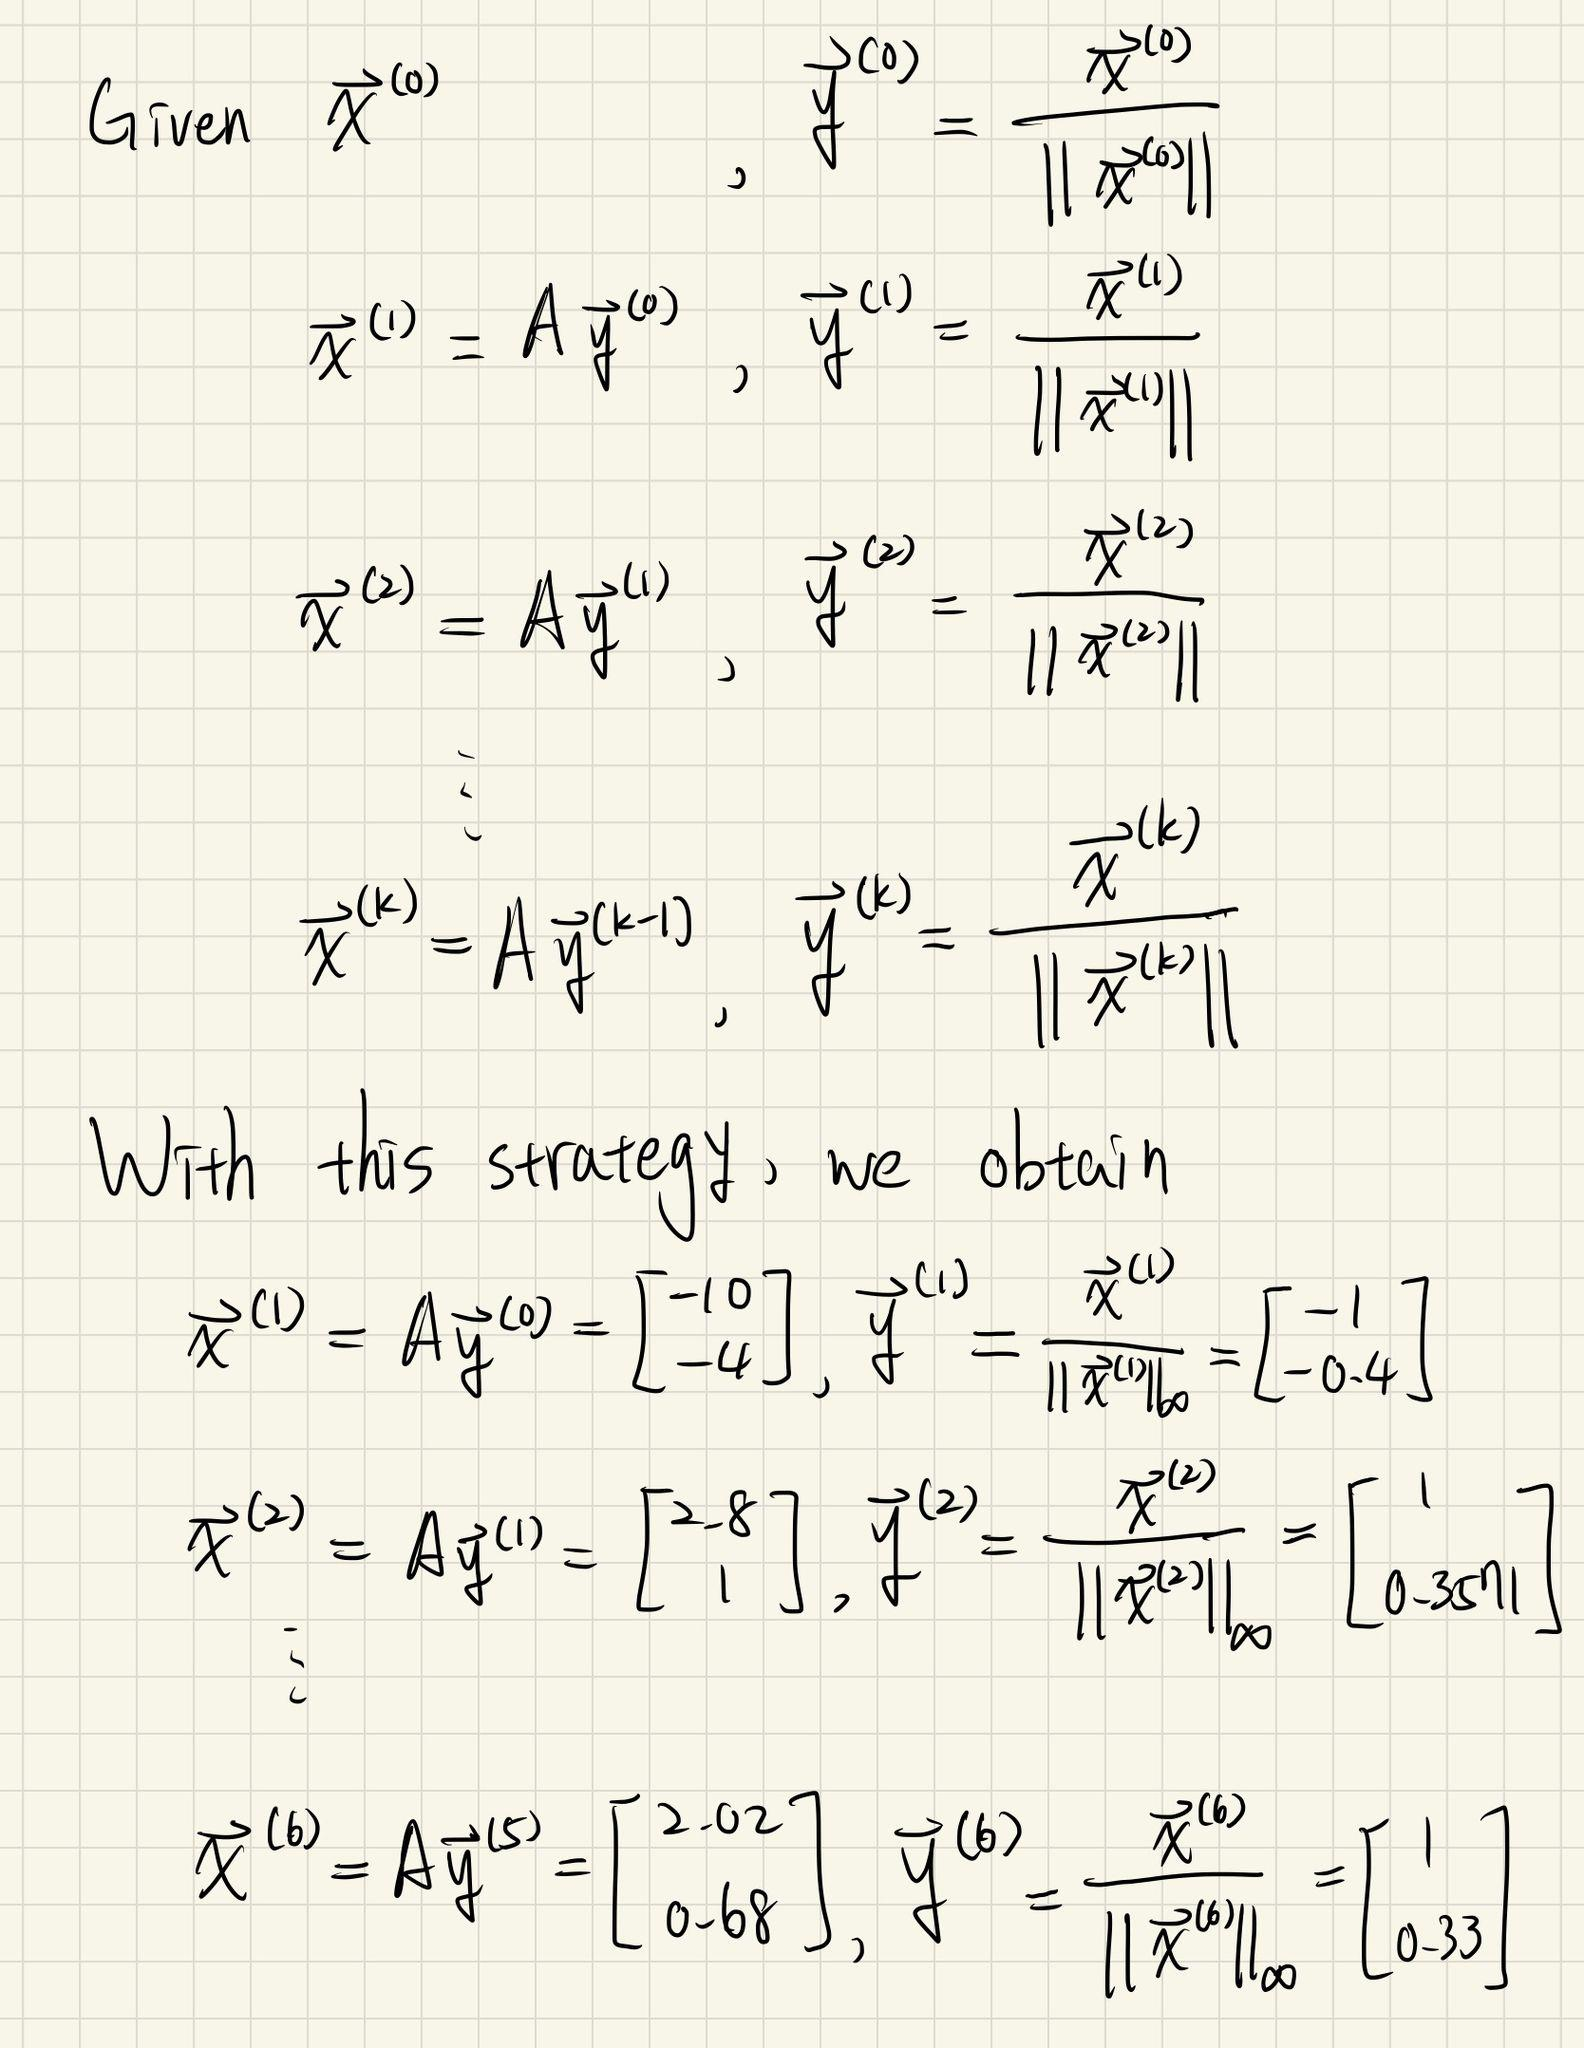 Given $\vec{x}^{(0)}$ , $\vec{y}^{(0)} = \frac{\vec{x}^{(0)}}{||\vec{x}^{(0)}||}$
$\vec{x}^{(1)} = A\vec{y}^{(0)}$ , $\vec{y}^{(1)} = \frac{\vec{x}^{(1)}}{||\vec{x}^{(1)}||}$
$\vec{x}^{(2)} = A\vec{y}^{(1)}$ , $\vec{y}^{(2)} = \frac{\vec{x}^{(2)}}{||\vec{x}^{(2)}||}$
⋮
$\vec{x}^{(k)} = A\vec{y}^{(k-1)}$ , $\vec{y}^{(k)} = \frac{\vec{x}^{(k)}}{||\vec{x}^{(k)}||}$
With this strategy, we obtain
$\vec{x}^{(1)} = A\vec{y}^{(0)} = \begin{bmatrix} -10 \\ -4 \end{bmatrix}$, $\vec{y}^{(1)} = \frac{\vec{x}^{(1)}}{||\vec{x}^{(1)}||_\infty} = \begin{bmatrix} -1 \\ -0.4 \end{bmatrix}$
$\vec{x}^{(2)} = A\vec{y}^{(1)} = \begin{bmatrix} 2.8 \\ 1 \end{bmatrix}$, $\vec{y}^{(2)} = \frac{\vec{x}^{(2)}}{||\vec{x}^{(2)}||_\infty} = \begin{bmatrix} 1 \\ 0.3571 \end{bmatrix}$
⋮
$\vec{x}^{(6)} = A\vec{y}^{(5)} = \begin{bmatrix} 2.02 \\ 0.68 \end{bmatrix}$, $\vec{y}^{(6)} = \frac{\vec{x}^{(6)}}{||\vec{x}^{(6)}||_\infty} = \begin{bmatrix} 1 \\ 0.33 \end{bmatrix}$